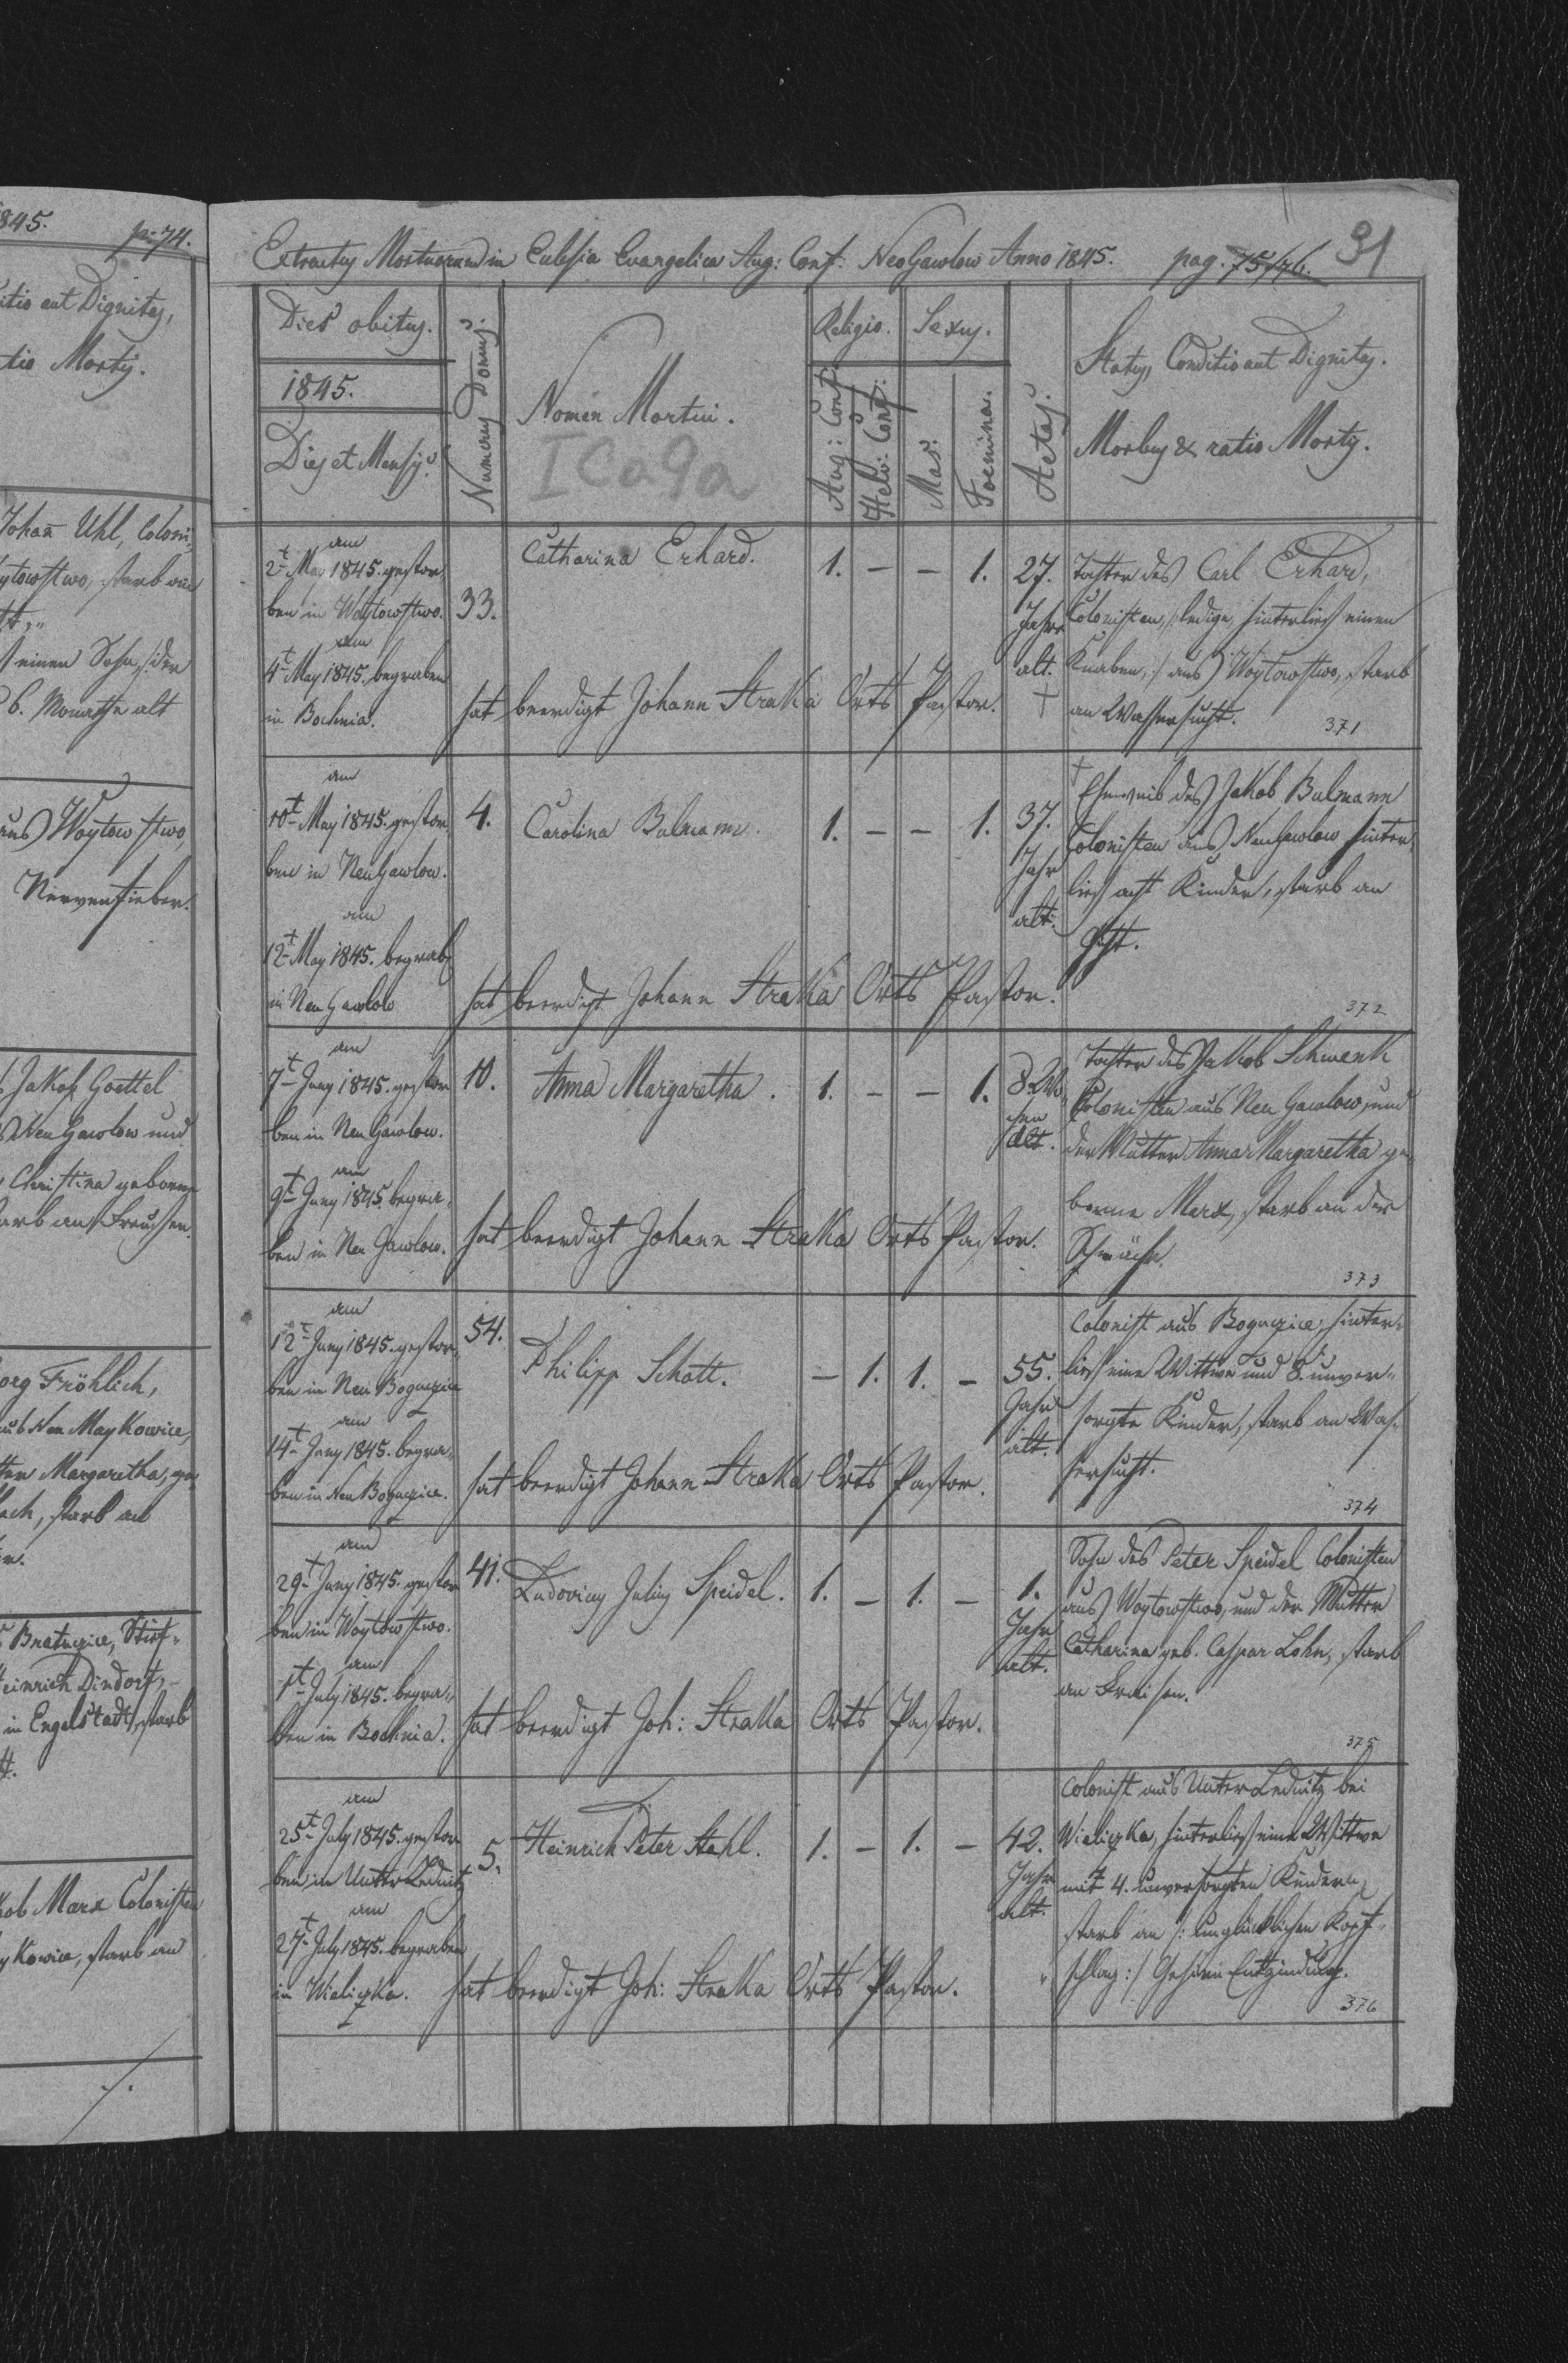 1845.
p: 74.
itio aut Dignitas,
tio Mortis.
Johañ Uhl, Coloni-
ytowstwo, starb an
einen Sohn, der
6. Monathe alt
aus Woytowstwo,
Nervenfieber.
Jakob Goettel
Neu Gawlow und
Christina geborene
arb an Freusen.
org Fröhlich,
aus Neu Maykowice,
tter Margaretha, ge-
ach, starb an
Bratucice, Stief-
Heinrich Dindorf,
in Engelstadt, starb
kob Marx Colonisten
ykowice, starb an
Extractus Mortuorum in Eclesia Evangelica Aug: Conf: NeoGawlow Anno 1845. pag. 75/76. 31
Dies obitus.
1845.
Dies et Mensis.
Numerus Domus.
Nomen Mortui.
ICa9a
Religio.
Aug: Conf:
Helv: Conf:
Sexus.
Mas.
Foemina.
Aetas.
Status, Conditio aut Dignitas.
Morbus & ratio Mortis.
am
2t May 1845. gestor-
ben in Woytowstwo.
am
4t May 1845. begraben
in Bochnia.
33.
Catharina Erhard.
1. – – 1.
27.
Jahre
alt.
†
Tochter des Carl Erhard,
Colonisten, /:ledige, hinterließ einen
Knaben,:/ aus Woytowstwo, starb
an Wassersucht.
371
hat beerdigt Johann Straka Orts Pastor.
am
10t May 1845. gestor-
ben in NeuGawlow.
am
12t May 1845. begrab
in Neu Gawlow
4.
Carolina Bulmann.
1. – – 1.
37.
Jahr
alt.
†
Eheweib des Jakob Bulmann
Colonisten aus NeuGawlow hinter-
ließ acht Kinder, starb an
Gicht.
372
hat beerdigt Johann Straka Orts Pastor.
am
7t Juny 1845. gestor
ben in Neu Gawlow.
am
9t Juny 1845. begra-
ben in Neu Gawlow.
10.
Anna Margaretha.
1. – – 1.
8 Wo-
chen
alt.
Tochter des Jakob Schwenk
Colonisten aus Neu Gawlow, und
der Mutter Anna Margaretha ge-
borene Marx, starb an der
Schwäche.
373
hat beerdigt Johann Straka Orts Pastor.
am
12t Juny 1845. gestor-
ben in Neu Bogucice
am
14t Juny 1845. begra-
ben in Neu Bogucice.
54.
Philipp Schott.
– 1. 1. –
55.
Jahr
alt.
Colonist aus Bogucice, hinter-
ließ eine Wittwe und 8. unver-
sorgte Kinder, starb an Was-
sersucht.
374
hat beerdigt Johann Straka Orts Pastor.
am
29t Juny 1845. gestor
ben in Woytowstwo.
am
1t July 1845. begra-
ben in Bochnia.
41.
Ludovicus Julius Speidel.
1. – 1. –
1.
Jahr
alt.
Sohn des Peter Speidel Colonisten
aus Woytowstwo, und der Mutter
Catharina geb. Caspar Lohn, starb
an Fraisen.
375
hat beerdigt Joh: Straka Orts Pastor.
am
25t July 1845. gestor
ben in Unter Lednitz
am
27t July 1845. begraben
in Wieliczka.
5.
Heinrich Peter Stahl.
1. – 1. –
42.
Jahr
alt.
Colonist aus Unter Lednitz bei
Wieliczka, hinterließ eine Wittwe
mit 4. unversorgten Kindern,
starb an /: unglücklichen Kopf-
schlag :/ Gehirn Entzündung.
376
hat beerdigt Joh: Straka Orts Pastor.